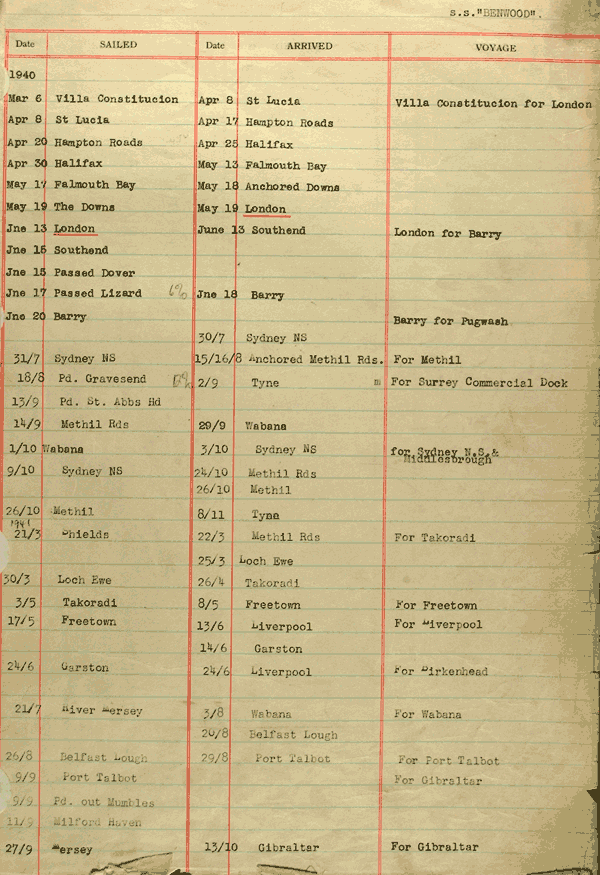 s.s."BENWOOD".
Date SAILED Date ARRIVED VOYAGE
1940
Mar 6 Villa Constitucion Apr 8 St Lucia Villa Constitucion for London
Apr 8 St Lucia Apr 17 Hampton Roads
Apr 20 Hampton Roads Apr 25 Halifax
Apr 30 Halifax May 13 Falmouth Bay
May 17 Falmouth Bay May 18 Anchored Downs
May 19 The Downs May 19 London
Jne 13 London June 13 Southend London for Barry
Jne 15 Southend
Jne 15 Passed Dover
Jne 17 Passed Lizard Jne 18 Barry
Jne 20 Barry Barry for Pugwash
30/7 Sydney NS
31/7 Sydney NS 15/16/8 Anchored Methil Rds. For Methil
18/8 Pd. Gravesend 2/9 Tyne m For Surrey Commercial Dock
13/9 Pd. St. Abbs Hd
14/9 Methil Rds 29/9 Wabana
1/10 Wabana 3/10 Sydney NS for Sydney N.S.&
Middlesbrough
9/10 Sydney NS 24/10 Methil Rds
26/10 Methil
26/10 Methil 8/11 Tyne
1941
21/3 Shields 22/3 Methil Rds For Takoradi
25/3 Loch Ewe
30/3 Loch Ewe 26/4 Takoradi
3/5 Takoradi 8/5 Freetown For Freetown
17/5 Freetown 13/6 Liverpool For Liverpool
14/6 Garston
24/6 Garston 24/6 Liverpool For Birkenhead
21/7 River Mersey 3/8 Wabana For Wabana
20/8 Belfast Lough
26/8 Belfast Lough 29/8 Port Talbot For Port Talbot
9/9 Port Talbot For Gibraltar
9/9 Pd. out Mumbles
11/9 Milford Haven
27/9 Mersey 13/10 Gibraltar For Gibraltar